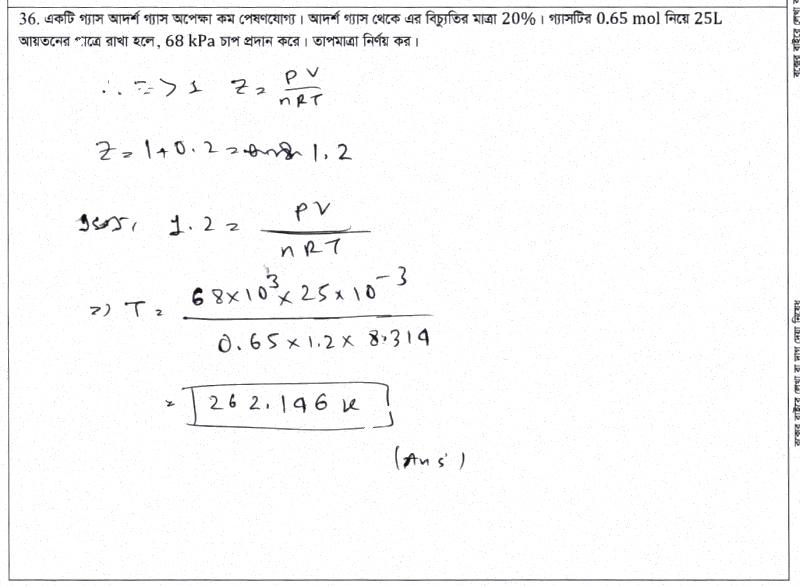 36. একটি গ্যাস আদর্শ গ্যাস অপেক্ষা কম পেষণযোগ্য। আদর্শ গ্যাস থেকে এর বিচ্যুতির মাত্রা 20%। গ্যাসটির 0.65 mol নিয়ে 25L
আয়তনের পাত্রে রাখা হলে, 68 kPa চাপ প্রদান করে। তাপমাত্রা নির্ণয় কর।
∴ Z > 1 Z = PV / nRT
Z = 1 + 0.2 = 1.2
1.2 = PV / nRT
⇒) T = 68×10³×25×10⁻³ / 0.65×1.2×8.314
= 262.146 K
(Ans)